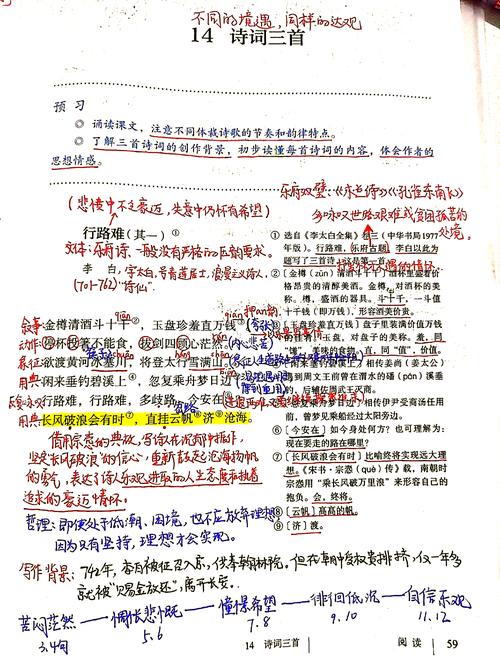 不同的境遇，同样的达观
14 诗词三首
预 习
◎ 诵读课文，注意不同体裁诗歌的节奏和韵律特点。
◎ 了解三首诗词的创作背景，初步读懂每首诗词的内容，体会作者的
思想情感。
乐府双璧：《木兰诗》《孔雀东南飞》
(悲愤中不乏豪迈，失意中仍怀有希望)
行路难（其一）①
体体：乐府诗，一般没有严格的
李 白，字太白，号青莲居士，浪漫主义诗人，
(701-762) "诗仙"。
叙事：金樽清酒斗十千②，玉盘珍羞直万钱③
动作：停杯投箸不能食，拔剑四顾心茫然。
象征 欲渡黄河冰塞川，将登太行雪满山。
用典 闲来垂钓碧溪上④，忽复乘舟梦日边⑤
用典 长风破浪会有时⑦，直挂云帆⑧济⑨沧海。
借用宗悫的典故，写诗人在沉郁中振作，
坚定"长风破浪"的信心，重新鼓起沧海扬帆
的勇气，表达了诗人乐观进取的人生态度和执着
追求的豪迈情怀。
哲理：即使处于低潮、困境，也不应放弃理想，
因为只有坚持，理想才会实现。
写作背景：742年，李白被征召入京，供奉翰林院。但在朝中受权贵排挤，仅一年多
就被"赐金放还"，离开长安。
苦闷茫然——惆怅悲慨——憧憬希望——徘徊低沉——自信乐观
3.4句 5.6 7.8 9.10 11.12
① 选自《李太白全集》卷三（中华书局1977
年版）。行路难，乐府古题。李白以此为
题写了三首诗，这是第一首。
② 〔金樽（zūn）清酒斗十千〕酒杯里盛着价
格昂贵的清醇美酒。金樽，对酒杯的美
称。樽，盛酒的器具。斗十千，一斗值
十千钱（即万钱），形容酒美价贵。
③ 〔玉盘珍羞直万钱〕盘子里装满价值万钱
的佳肴。玉盘，对盘子的美称。羞，同
"馐"，美味的食物。直，同"值"，价值。
曾梦见乘船经过太阳旁边。
⑥ 〔今安在〕如今身处何方？也可理解为：
现在要走的路在哪里？
⑦ 〔长风破浪会有时〕比喻终将实现远大理
想。《宋书·宗悫（què）传》载，南朝时
宗悫用"乘长风破万里浪"来形容自己的
抱负。会，终将。
⑧ 〔云帆〕高高的帆。
⑨ 〔济〕渡。
14 诗词三首 阅 读 59